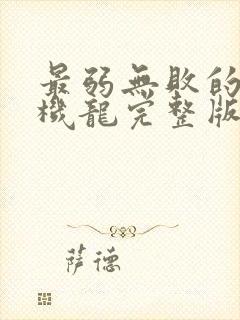 最弱無敗的
機龍完整版
萨德